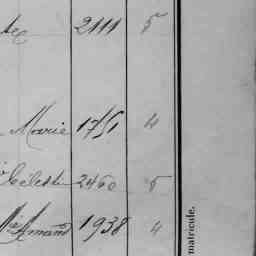 2111 5
Marie 1751 4
Céleste 2460 5
Armand 1938 4
matricule.